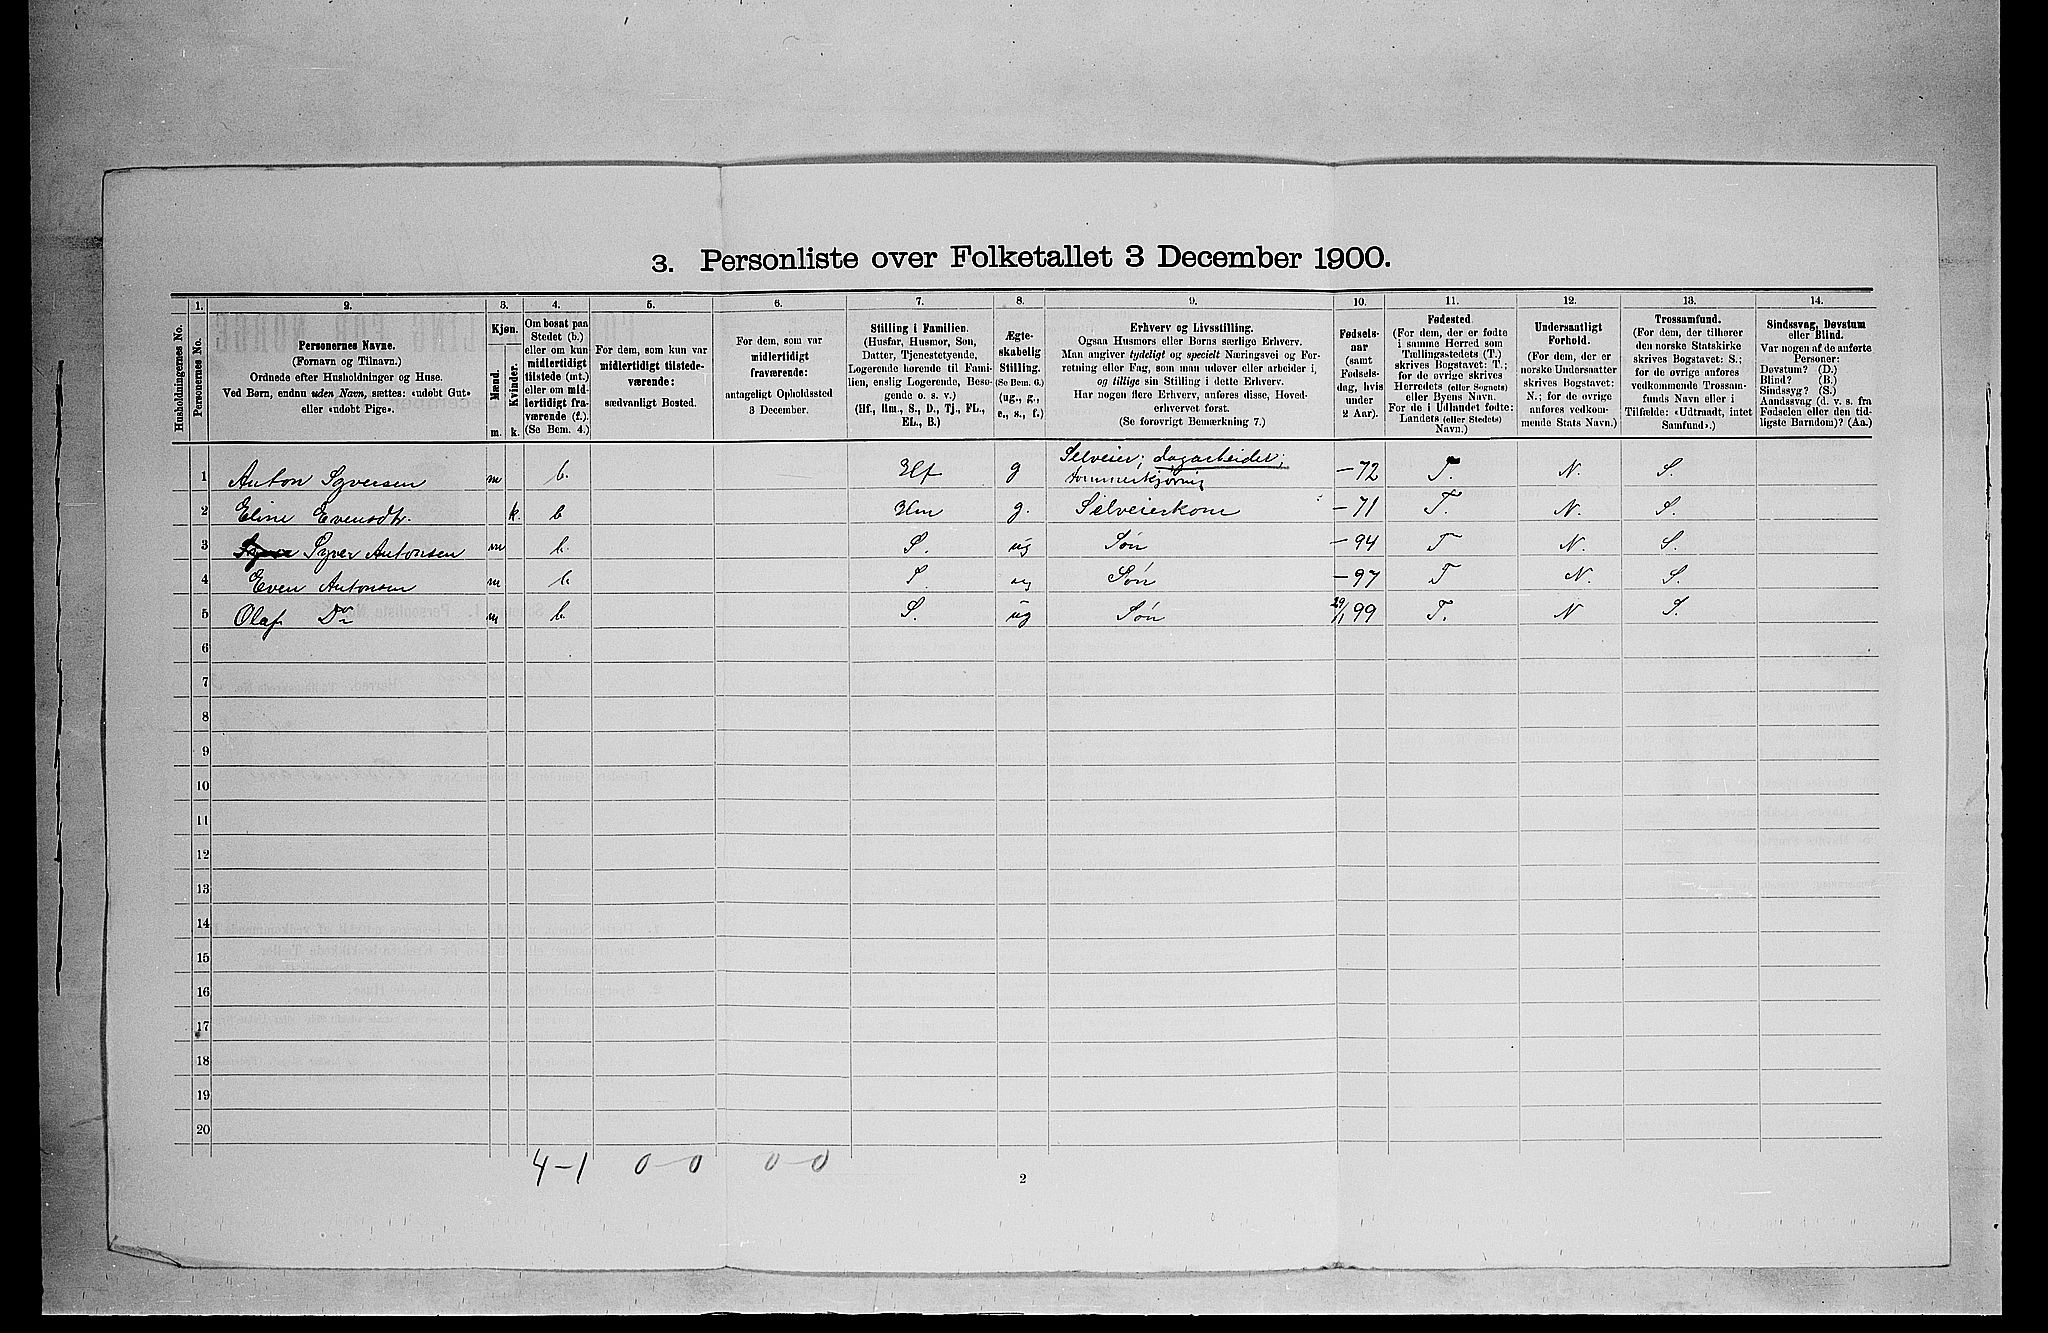 3. Personliste over Folketallet 3 December 1900.
1. 2. 3. 4. 5. 6. 7. 8. 9. 10. 11. 12. 13. 14.
Husholdningernes No.
Personernes No.
Personernes Navne.
(Fornavn og Tilnavn.)
Ordnede efter Husholdninger og Huse.
Ved Børn, endnu uden Navn, sættes: «udøbt Gut»
eller «udøbt Pige».
Kjøn.
Mænd.
Kvinder.
m. k.
Om bosat paa
Stedet (b.)
eller om kun
midlertidigt
tilstede (mt.)
eller om mid-
lertidigt fra-
værende (f.)
(Se Bem. 4.)
For dem, som kun var
midlertidigt tilstede-
værende:
sædvanligt Bosted.
For dem, som var
midlertidigt
fraværende:
antageligt Opholdssted
3 December.
Stilling i Familien.
(Husfar, Husmor, Søn,
Datter, Tjenestetyende,
Logerende hørende til Fami-
lien, enslig Logerende, Besø-
gende o. s. v.)
(Hf., Hm., S., D., Tj., FL.,
EL., B.)
Ægte-
skabelig
Stilling.
(Se Bem. 6.)
(ug., g.,
e., s., f.)
Erhverv og Livsstilling.
Ogsaa Husmors eller Børns særlige Erhverv.
Man angiver tydeligt og specielt Næringsvei og For-
retning eller Fag, som man udøver eller arbeider i,
og tillige sin Stilling i dette Erhverv.
Har nogen flere Erhverv, anføres disse, Hoved-
erhvervet først.
(Se forøvrigt Bemærkning 7.)
Fødsels-
aar
(samt
Fødsels-
dag, hvis
under
2 Aar).
Fødested.
(For dem, der er fødte
i samme Herred som
Tællingsstedets (T.)
skrives Bogstavet: T.;
for de øvrige skrives
Herredets (eller Sognets)
eller Byens Navn.
For de i Udlandet fødte:
Landets (eller Stedets)
Navn.)
Undersaatligt
Forhold.
(For dem, der er
norske Undersaatter
skrives Bogstavet:
N.; for de øvrige
anføres vedkom-
mende Stats Navn.)
Trossamfund.
(For dem, der tilhører
den norske Statskirke
skrives Bogstavet: S.;
for de øvrige anføres
vedkommende Trossam-
funds Navn eller i
Tilfælde: «Udtraadt, intet
Samfund».)
Sindssvag, Døvstum
eller Blind.
Var nogen af de anførte
Personer:
Døvstum? (D.)
Blind? (B.)
Sindssyg? (S.)
Aandssvag (d. v. s. fra
Fødselen eller den tid-
ligste Barndom)? (Aa.)
1 Anton Syversen m b. Hf g Selveier; dagarbeider; tømmerkjøring -72 T. N. S.
2 Eline Evensdtr. k. b Hm g. Selveierkone -71 T. N. S.
3 Syver Antonsen m b. S. ug Søn -94 T N. S.
4 Even Antonsen m b. S. ug Søn -97 T N. S.
5 Olaf Do m b. S. ug Søn 29/1 99 T. N S.
6
7
8
9
10
11
12
13
14
15
16
17
18
19
20
4-1 0-0 0-0
2